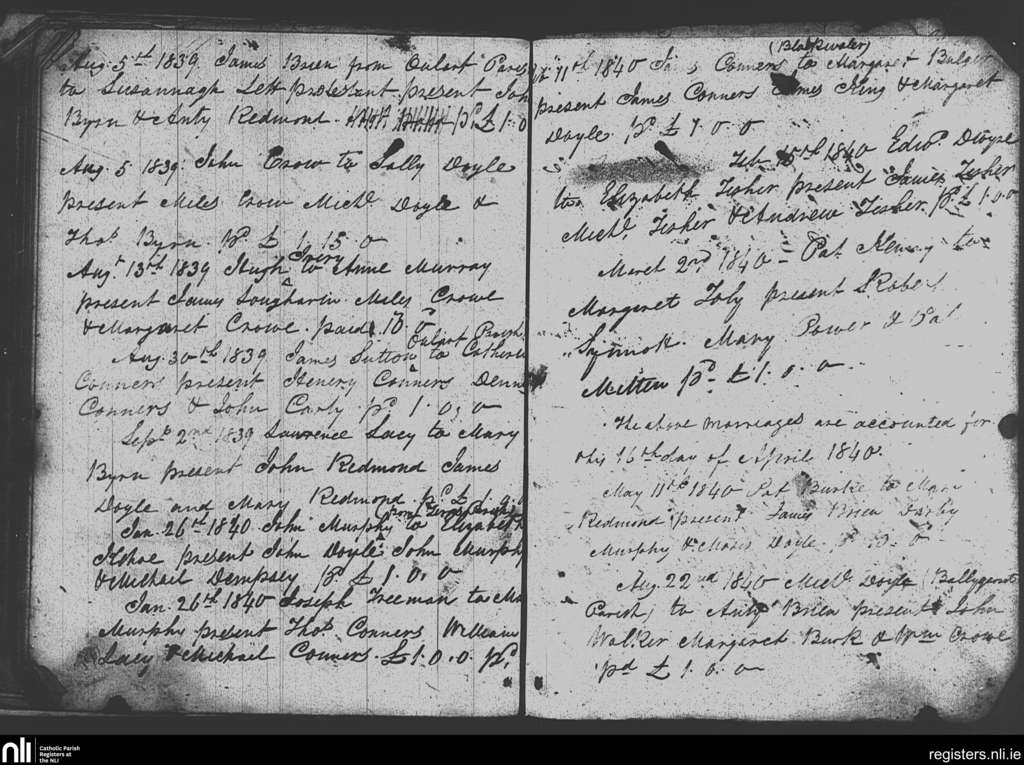 Aug. 5th 1839 James Brien from Oulart Paris
to Susannagh Lett protestant present Joh
Byrn & Anty Redmond. pd. £1.0
Aug. 5 1839. John Crow to Sally Doyle
present Miles Crow Michl. Doyle &
Thos. Byrn. pd. £ 1. 15. 0
Augt. 13th 1839 Hugh Ivory to Anne Murray
present James Lougharin Miles Crowe
& Margaret Crowe. paid 1. 10. 0
Oulart Parish
Aug. 30th 1839 James Sutton to Catherin
Conners present Henery Conners Denn
Conners & John Carty pd. 1. 0. 0
Sept. 2nd 1839 Lawrence Lacy to Mary
Byrn present John Redmond James
Doyle and Mary Redmond. pd. £ 1. 0. 0
(from Ferns Parish)
Jan. 26th 1840 John Murphy to Elizabeth
Kehoe present John Doyle John Murphy
& Michael Dempsey pd. £ 1. 0. 0
Jan. 26th 1840 Joseph Freeman to Ma
Murphy present Thos. Conners William
Lacy & Michael Conners. £1. 0. 0. pd.
(Blackwater)
11th 1840 Conners to Margaret Bulger
present James Conners James King & Margaret
Doyle pd. £ 1. 0. 0
Feb. 15th 1840 Edwd. Dwyre
to Elizabeth Fisher present James Fisher
Michl. Fisher & Andrew Fisher. pd. £ 1. 0. 0
March 2nd 1840 = Pat. Henry to
Margaret Foly present Robert
Synnott. Mary Power & Pat
Mitten pd. £ 1. 0. 0
The above marriages are accounted for
this 16th day of April 1840.
May 11th 1840 Pat Burke to Mary
Redmond present James Brien Darby
Murphy & Moses Doyle 0
Aug. 22nd 1840 Michl. Doyle (Ballygarret
Parish) to Anty Brien present John
Walker Margaret Burk & Wm Crowe
pd £ 1. 0. 0
nli Catholic Parish
Registers at
the NLI
registers.nli.ie